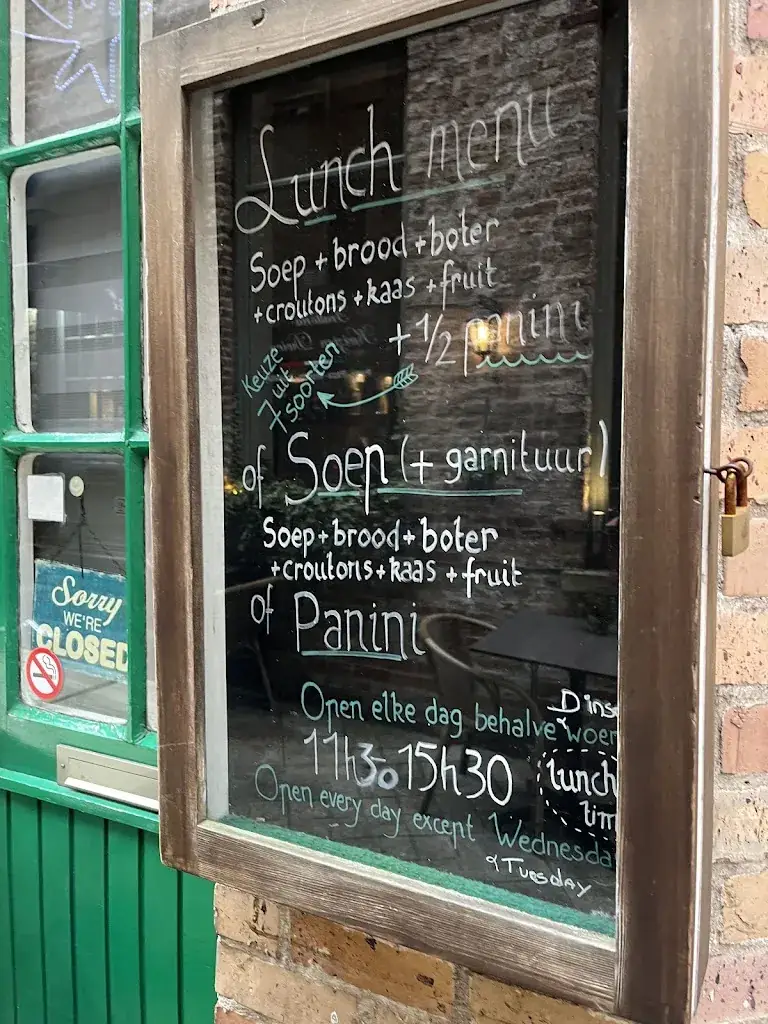 Lunch menu
Soep + brood + boter
+ croutons + kaas + fruit
+ 1/2 panini
Keuze
uit
7 soorten
of Soep (+ garnituur)
Soep + brood + boter
+ croutons + kaas + fruit
of Panini
Dins
Open elke dag behalve woen
11h30 15h30
lunch
tim
Open every day except Wednesda
& Tuesday
Sorry
WE'RE
CLOSED